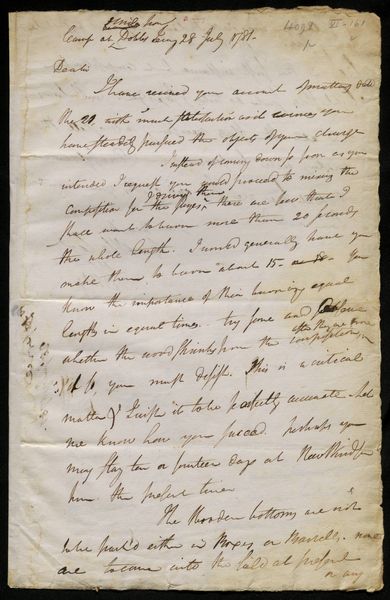 Camp at Dobbs Ferry 28 July 1781.
Dear Sir
I have received your account
the 20 with much satisfaction and
have steadily pursued the objects of your charge
Instead of coming down so soon as you
intended I request you would proceed to mixing the
composition for the there are less that I
shall want to burn more than 20 seconds
the whole length. I would generally have you
make them to burn about 15. You
know the importance of their burning equal
lengths in equal times. try some and
whether the wood shrinks from the composition
after they are done
if so, you must desist. This is a critical
matter) I wish it to be perfectly accurate let
me know how you succeed perhaps you
may stay ten or fourteen days at New Wind
from the present time
The Wooden bottoms are not
to be pack'd either in Boxes or Barrells. none
are to come with the Field at present
or any